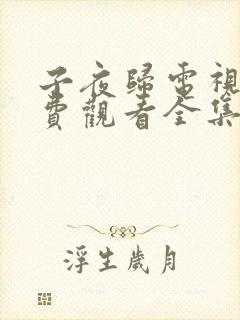 子夜歸電視
費觀看全集
浮生歲月